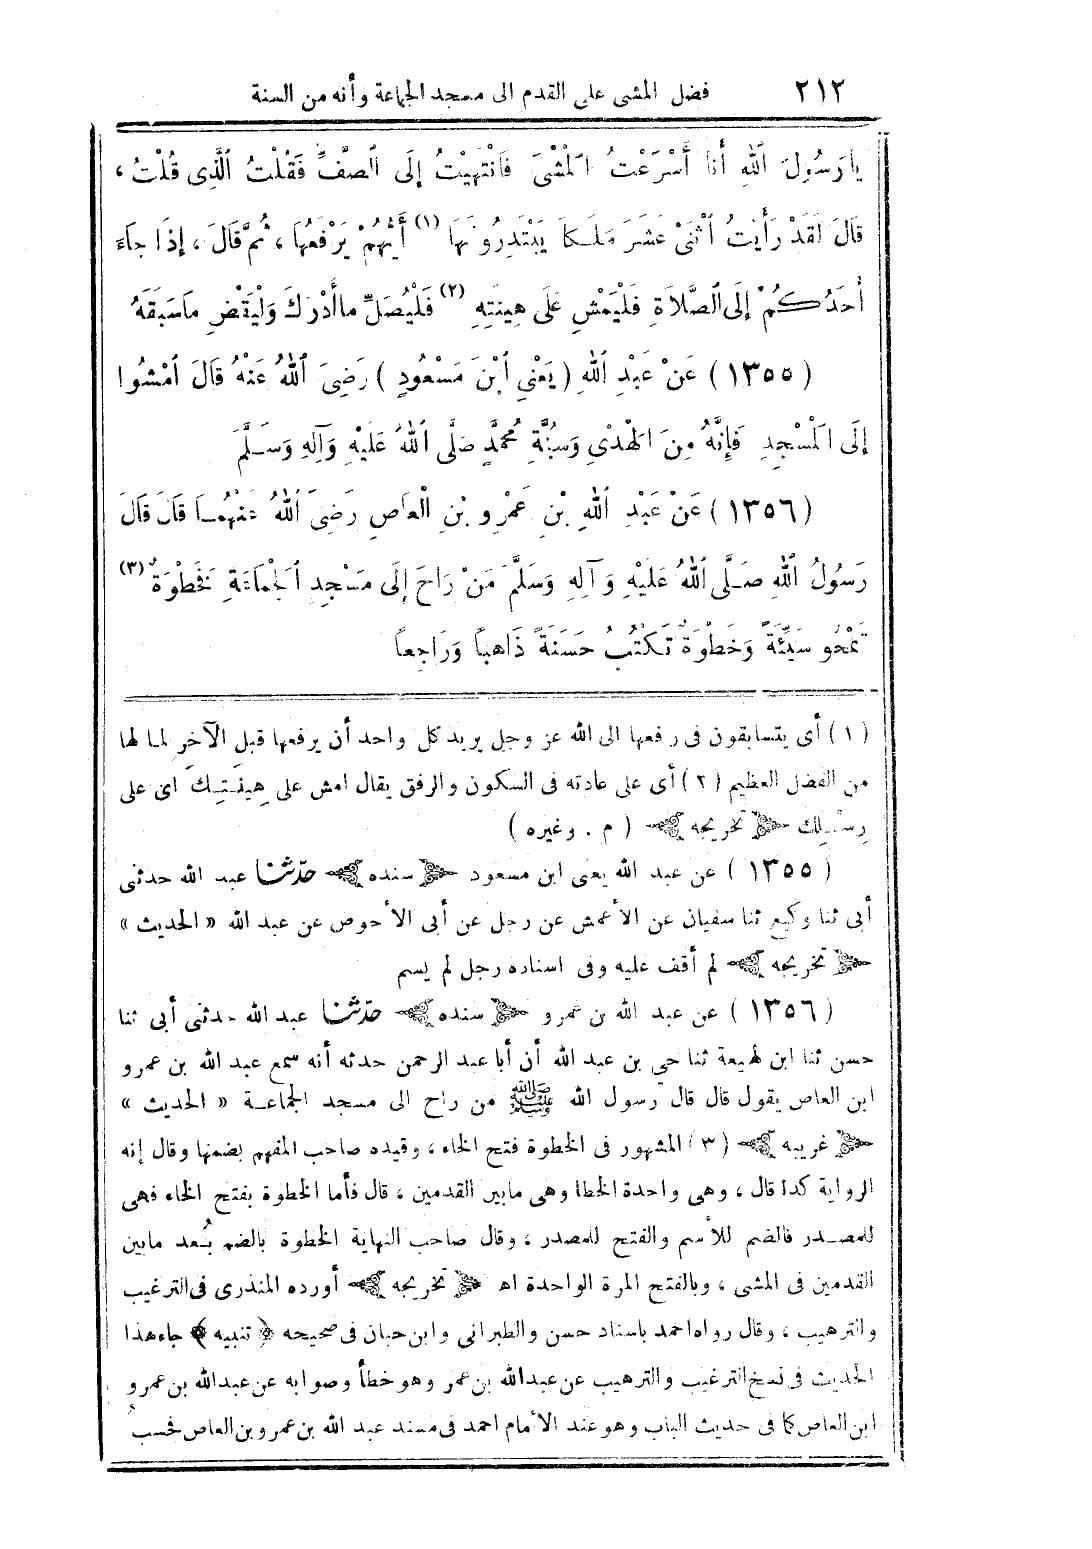 ٢١٢ فضل المشى على القدم الى مسجد الجماعة وأنه من السنة
يَا رَسُولَ ٱللهِ أَنَا أَسْرَعْتُ ٱلْمَشْىَ فَانْتَهَيْتُ إِلَى ٱلصَّفِّ فَقُلْتُ ٱلَّذِى قُلْتُ ،
قَالَ لَقَدْ رَأَيْتُ ٱثْنَىْ عَشَرَ مَلَكاً يَبْتَدِرُونَهَا (١) أَيُّهُمْ يَرْفَعُهَا ، ثُمَّ قَالَ ، إِذَا جَاءَ
أَحَدُكُمْ إِلَى ٱلصَّلَاةِ فَلْيَمْشِ عَلَى هِينَتِهِ (٢) فَلْيُصَلِّ مَا أَدْرَكَ وَلْيَقْضِ مَا سَبَقَهُ
( ١٣٥٥ ) عَنْ عَبْدِ ٱللهِ ( يَعْنِى ٱبْنَ مَسْعُودٍ ) رَضِىَ ٱللهُ عَنْهُ قَالَ ٱمْشُوا
إِلَى ٱلْمَسْجِدِ فَإِنَّهُ مِنَ ٱلْهَدْىِ وَسُنَّةِ مُحَمَّدٍ صَلَّى ٱللهُ عَلَيْهِ وَآلِهِ وَسَلَّمَ
( ١٣٥٦ ) عَنْ عَبْدِ ٱللهِ بْنِ عَمْرِو بْنِ الْعَاصِ رَضِىَ ٱللهُ عَنْهُمَا قَالَ قَالَ
رَسُولُ ٱللهِ صَلَّى ٱللهُ عَلَيْهِ وَآلِهِ وَسَلَّمَ مَنْ رَاحَ إِلَى مَسْجِدِ ٱلْجَمَاعَةِ فَخَطْوَةٌ (٣)
تَمْحُو سَيِّئَةً وَخَطْوَةٌ تَكْتُبُ حَسَنَةً ذَاهِباً وَرَاجِعاً
( ١ ) أى يتسابقون فى رفعها الى الله عز وجل يريد كل واحد أن يرفعها قبل الآخر لما لها
من الفضل العظيم ( ٢ ) أى على عادته فى السكون والرفق يقال امش على هِينَتِكَ اى على
رِسْلِك ﴿ تخريجه ﴾ ( م . وغيره )
( ١٣٥٥ ) عن عبد الله يعنى ابن مسعود ﴿ سنده ﴾ حدّثنا عبد الله حدثنى
أبى ثنا وكيع ثنا سفيان عن الأعمش عن رجل عن أبى الأحوص عن عبد الله « الحديث »
﴿ تخريجه ﴾ لم أقف عليه وفى اسناده رجل لم يسم
( ١٣٥٦ ) عن عبد الله بن عمرو ﴿ سنده ﴾ حدّثنا عبد الله حدثنى أبى ثنا
حسن ثنا ابن لهيعة ثنا حيي بن عبد الله أن أبا عبد الرحمن حدثه أنه سمع عبد الله بن عمرو
ابن العاص يقول قال قال رسول الله ﷺ من راح الى مسجد الجماعة « الحديث »
﴿ غريبه ﴾ ( ٣ ) المشهور فى الخطوة فتح الخاء ، وقيده صاحب المفهم بضمها وقال إنه
الرواية كذا قال ، وهى واحدة الخطا وهى مابين القدمين ، قال فأما الخطوة بفتح الخاء فهى
للمصدر فالضم للأسم والفتح للمصدر ، وقال صاحب النهاية الخطوة بالضم بُعد مابين
القدمين فى المشى ، وبالفتح المرة الواحدة اهـ ﴿ تخريجه ﴾ أورده المنذرى فى الترغيب
والترهيب ، وقال رواه احمد باسناد حسن والطبرانى وابن حبان فى صحيحه ﴿ تنبيه ﴾ جاء هذا
الحديث فى نسخ الترغيب والترهيب عن عبد الله بن عمر وهو خطأ وصوابه عن عبد الله بن عمرو
ابن العاص كما فى حديث الباب وهو عند الأمام احمد فى مسند عبد الله بن عمرو بن العاص فحسب